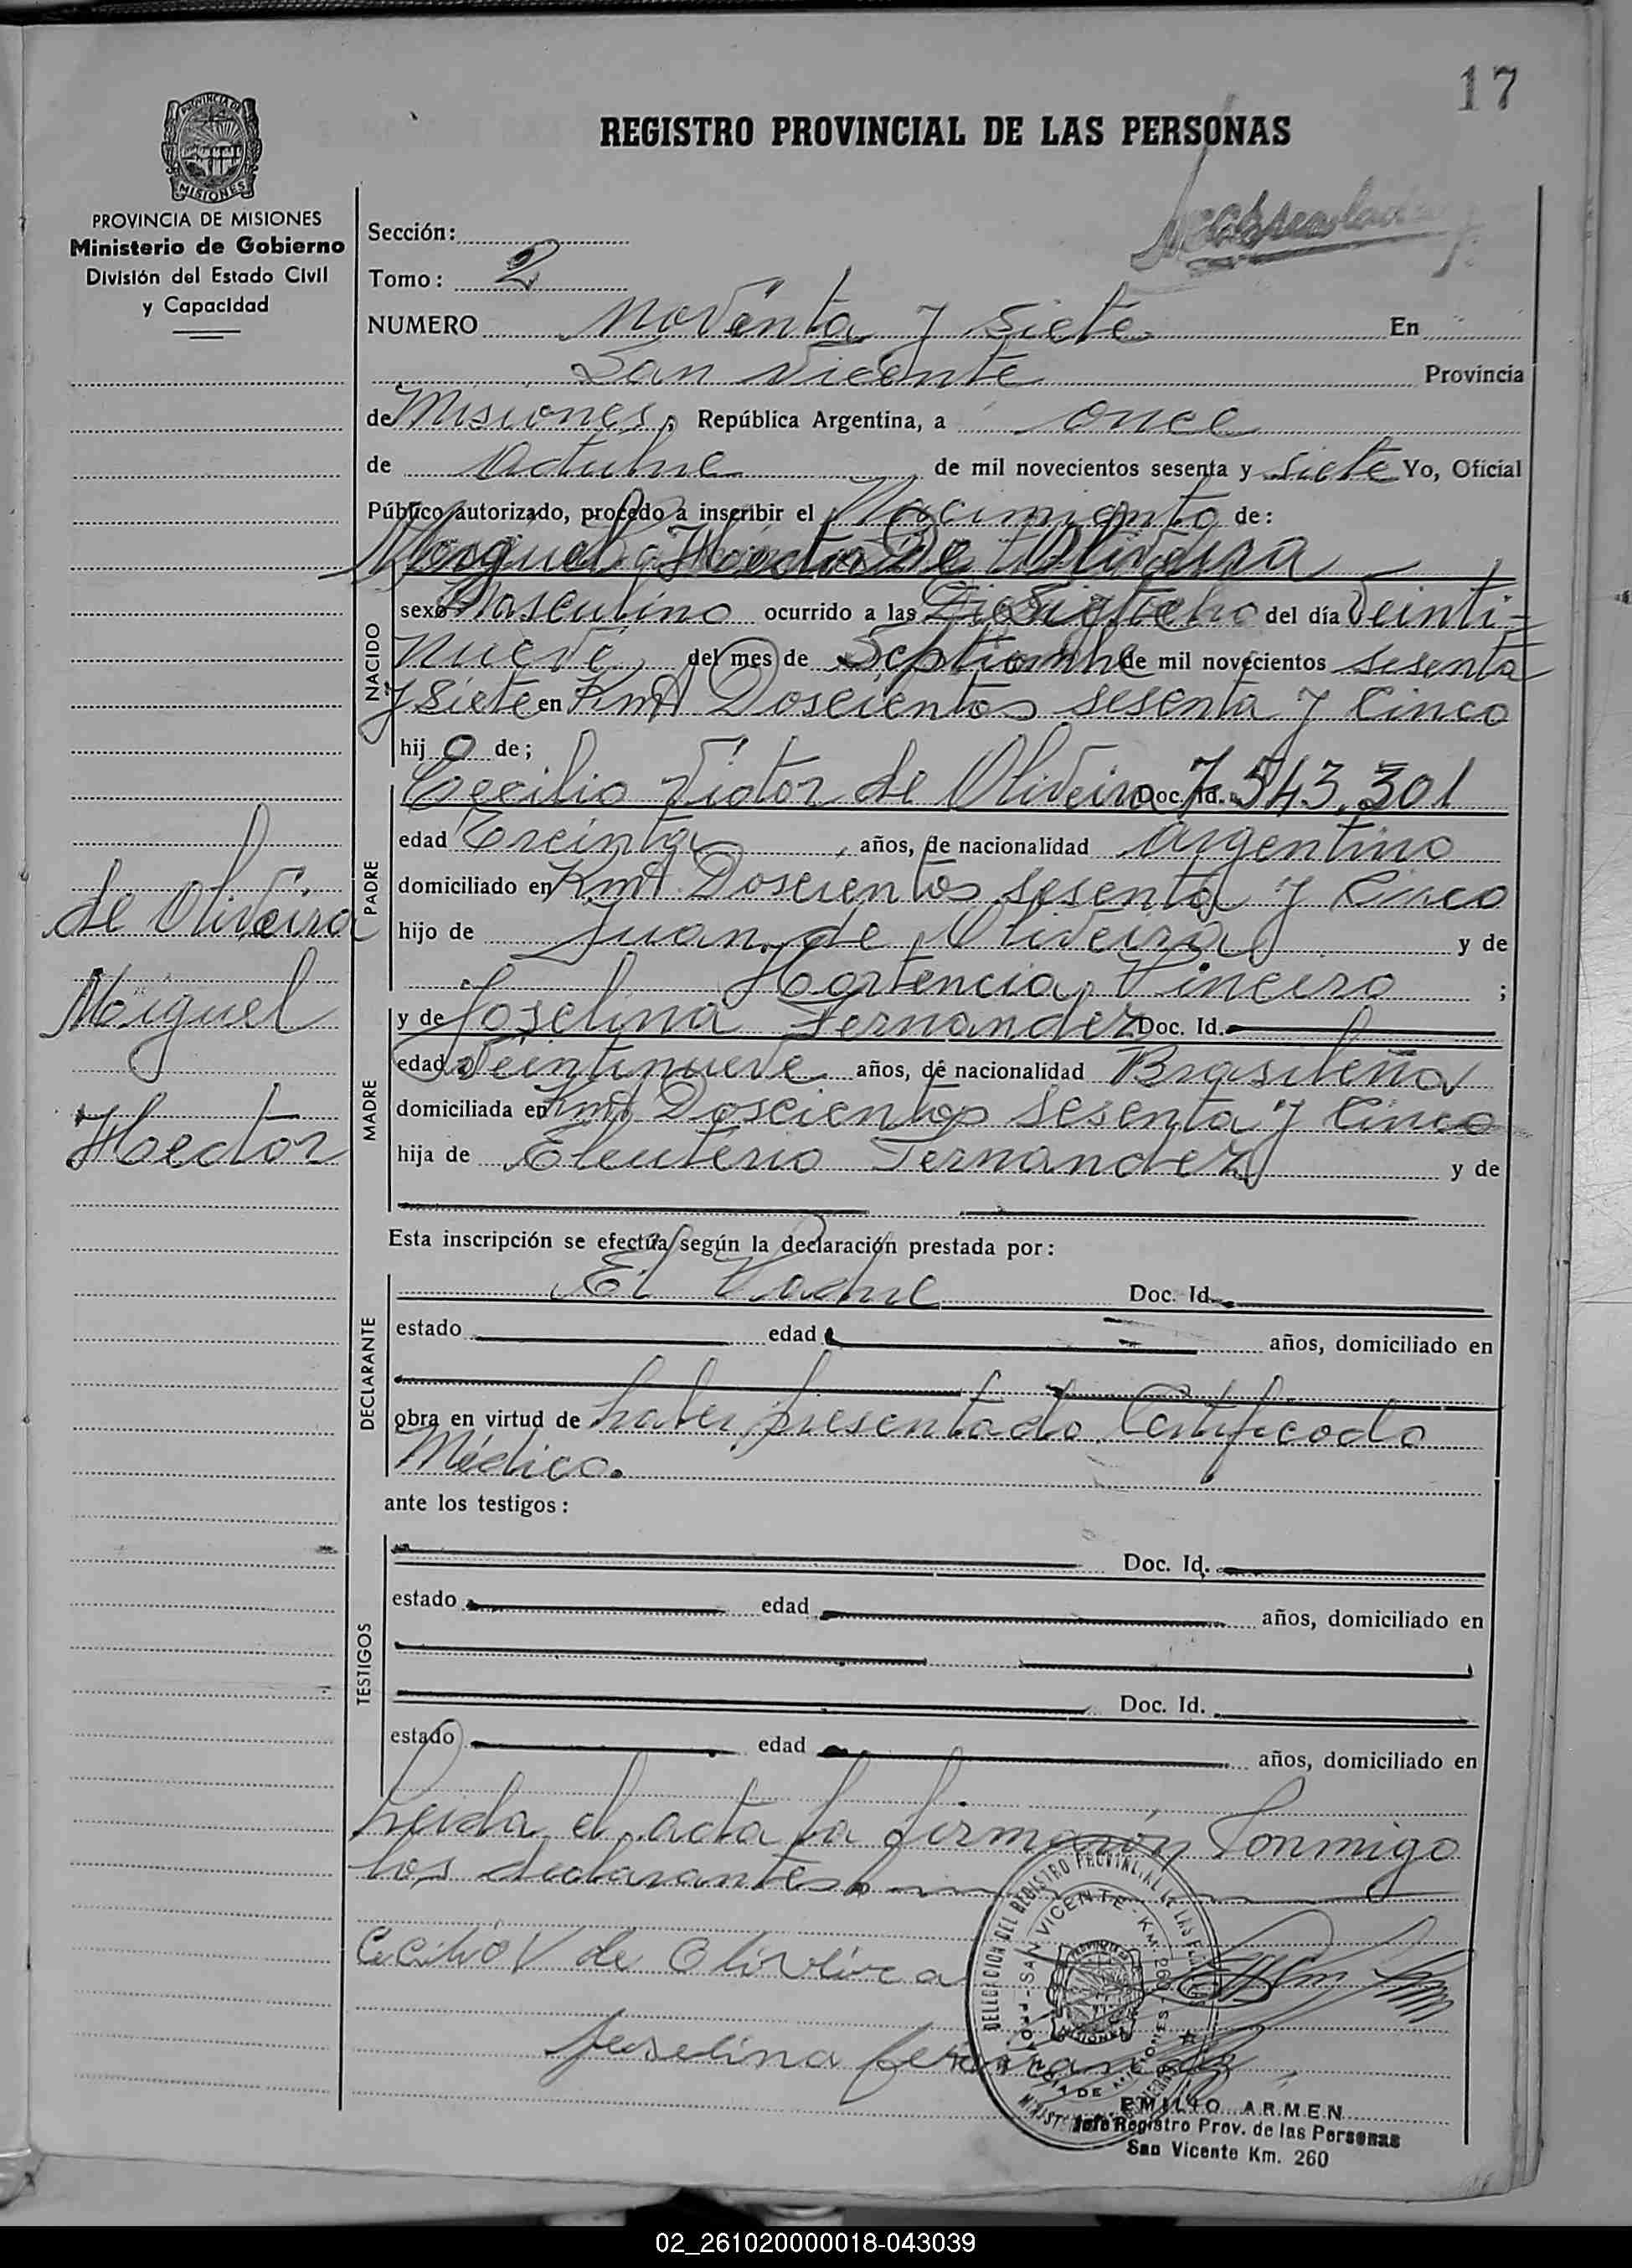 17
REGISTRO PROVINCIAL DE LAS PERSONAS
PROVINCIA DE MISIONES
MISIONES
PROVINCIA DE MISIONES
Ministerio de Gobierno
División del Estado Civil
y Capacidad
Sección:
Tomo: 2
NUMERO Noventa y siete En
San Vicente Provincia
de Misiones, República Argentina, a once
de Octubre de mil novecientos sesenta y siete Yo, Oficial
Público autorizado, procedo a inscribir el Nacimiento de:
Moiguel Hoector De Oliveira
NACIDO
sexo Masculino ocurrido a las del día Veinti-
nueve, del mes de Septiembre de mil novecientos sesenta
y Siete en Kmt Doscientos sesenta y Cinco
hij o de;
PADRE
Cecilio Victor de Oliveira Doc. Id. 7.543.301
edad Treinta, años, de nacionalidad argentino
domiciliado en Kmt. Doscientos sesenta y Cinco
hijo de Juan de Oliveira y de
Hortencia Pineiro ;
de Oliveira
Moiguel
Hoector
MADRE
y de Joselina Fernandez Doc. Id.
edad Veintinueve años, de nacionalidad Brasileña
domiciliada en Kmt Doscientos sesenta y Cinco
hija de Eleuterio Fernandez y de
Esta inscripción se efectúa según la declaración prestada por:
DECLARANTE
El Padre Doc. Id.
estado edad años, domiciliado en
obra en virtud de haber presentado Certificado
Médico.
ante los testigos:
TESTIGOS
Doc. Id.
estado edad años, domiciliado en
Doc. Id.
estado edad años, domiciliado en
Leida el acta la firmarón Conmigo
los declarantes.
Cecilio V de Oliveira
Juselina fernandez
DELEGACION DEL REGISTRO PROVINCIAL DE LAS PERSONAS
SAN VICENTE - KM. 260 - PROVINCIA DE MISIONES
EMILIO ARMEN
Jefe Registro Prov. de las Personas
San Vicente Km. 260
02_261020000018-043039